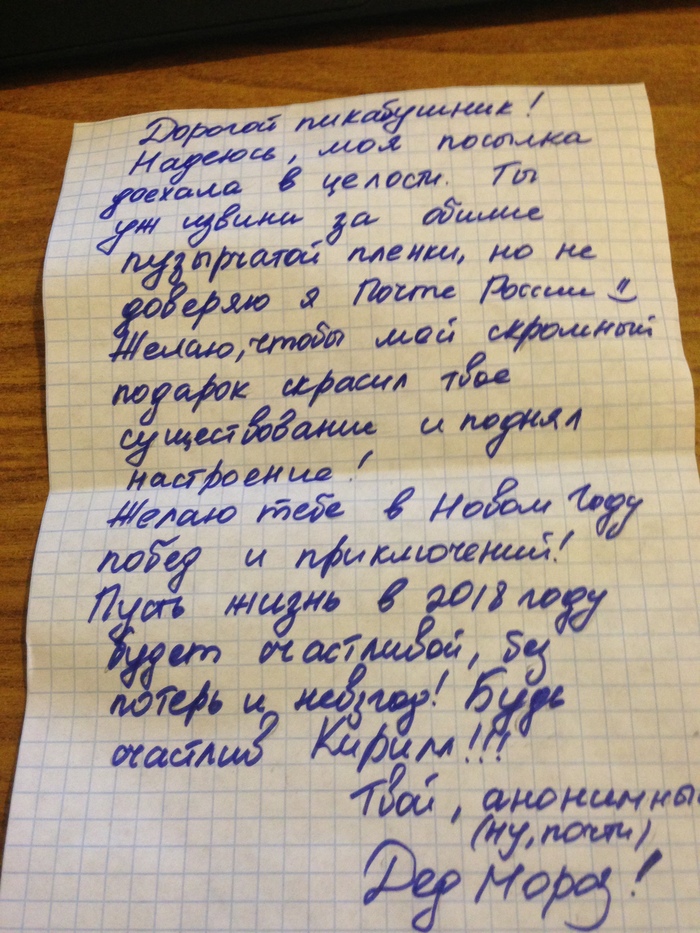 Дорогой пикабушник!
Надеюсь, моя посылка
доехала в целости. Ты
уж извини за обилие
пузырчатой пленки, но не
доверяю я Почте России
Желаю, чтобы мой скромный
подарок скрасил твое
существование и поднял
настроение!
Желаю тебе в Новом Году
побед и приключений!
Пусть жизнь в 2018 году
будет счастливой, без
потерь и невзгод! Будь
счастлив Кирилл!!!
Твой, анонимны
(ну, почти)
Дед Мороз!